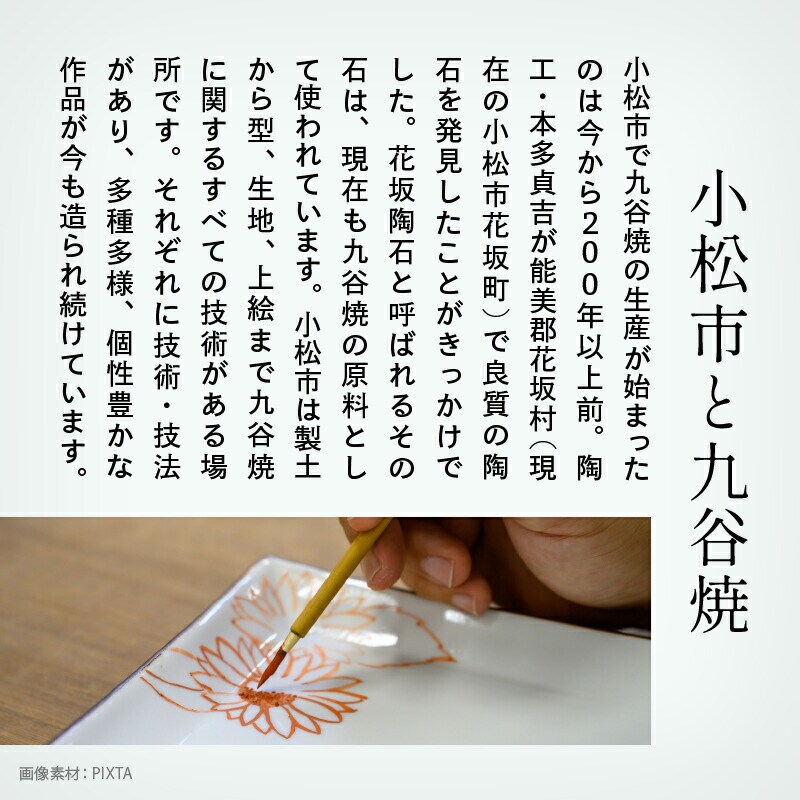 小松市と九谷焼
小松市で九谷焼の生産が始まった
のは今から200年以上前。陶
工・本多貞吉が能美郡花坂村（現
在の小松市花坂町）で良質の陶
石を発見したことがきっかけで
した。花坂陶石と呼ばれるその
石は、現在も九谷焼の原料とし
て使われています。小松市は製土
から型、生地、上絵まで九谷焼
に関するすべての技術がある場
所です。それぞれに技術・技法
があり、多種多様、個性豊かな
作品が今も造られ続けています。
画像素材：PIXTA